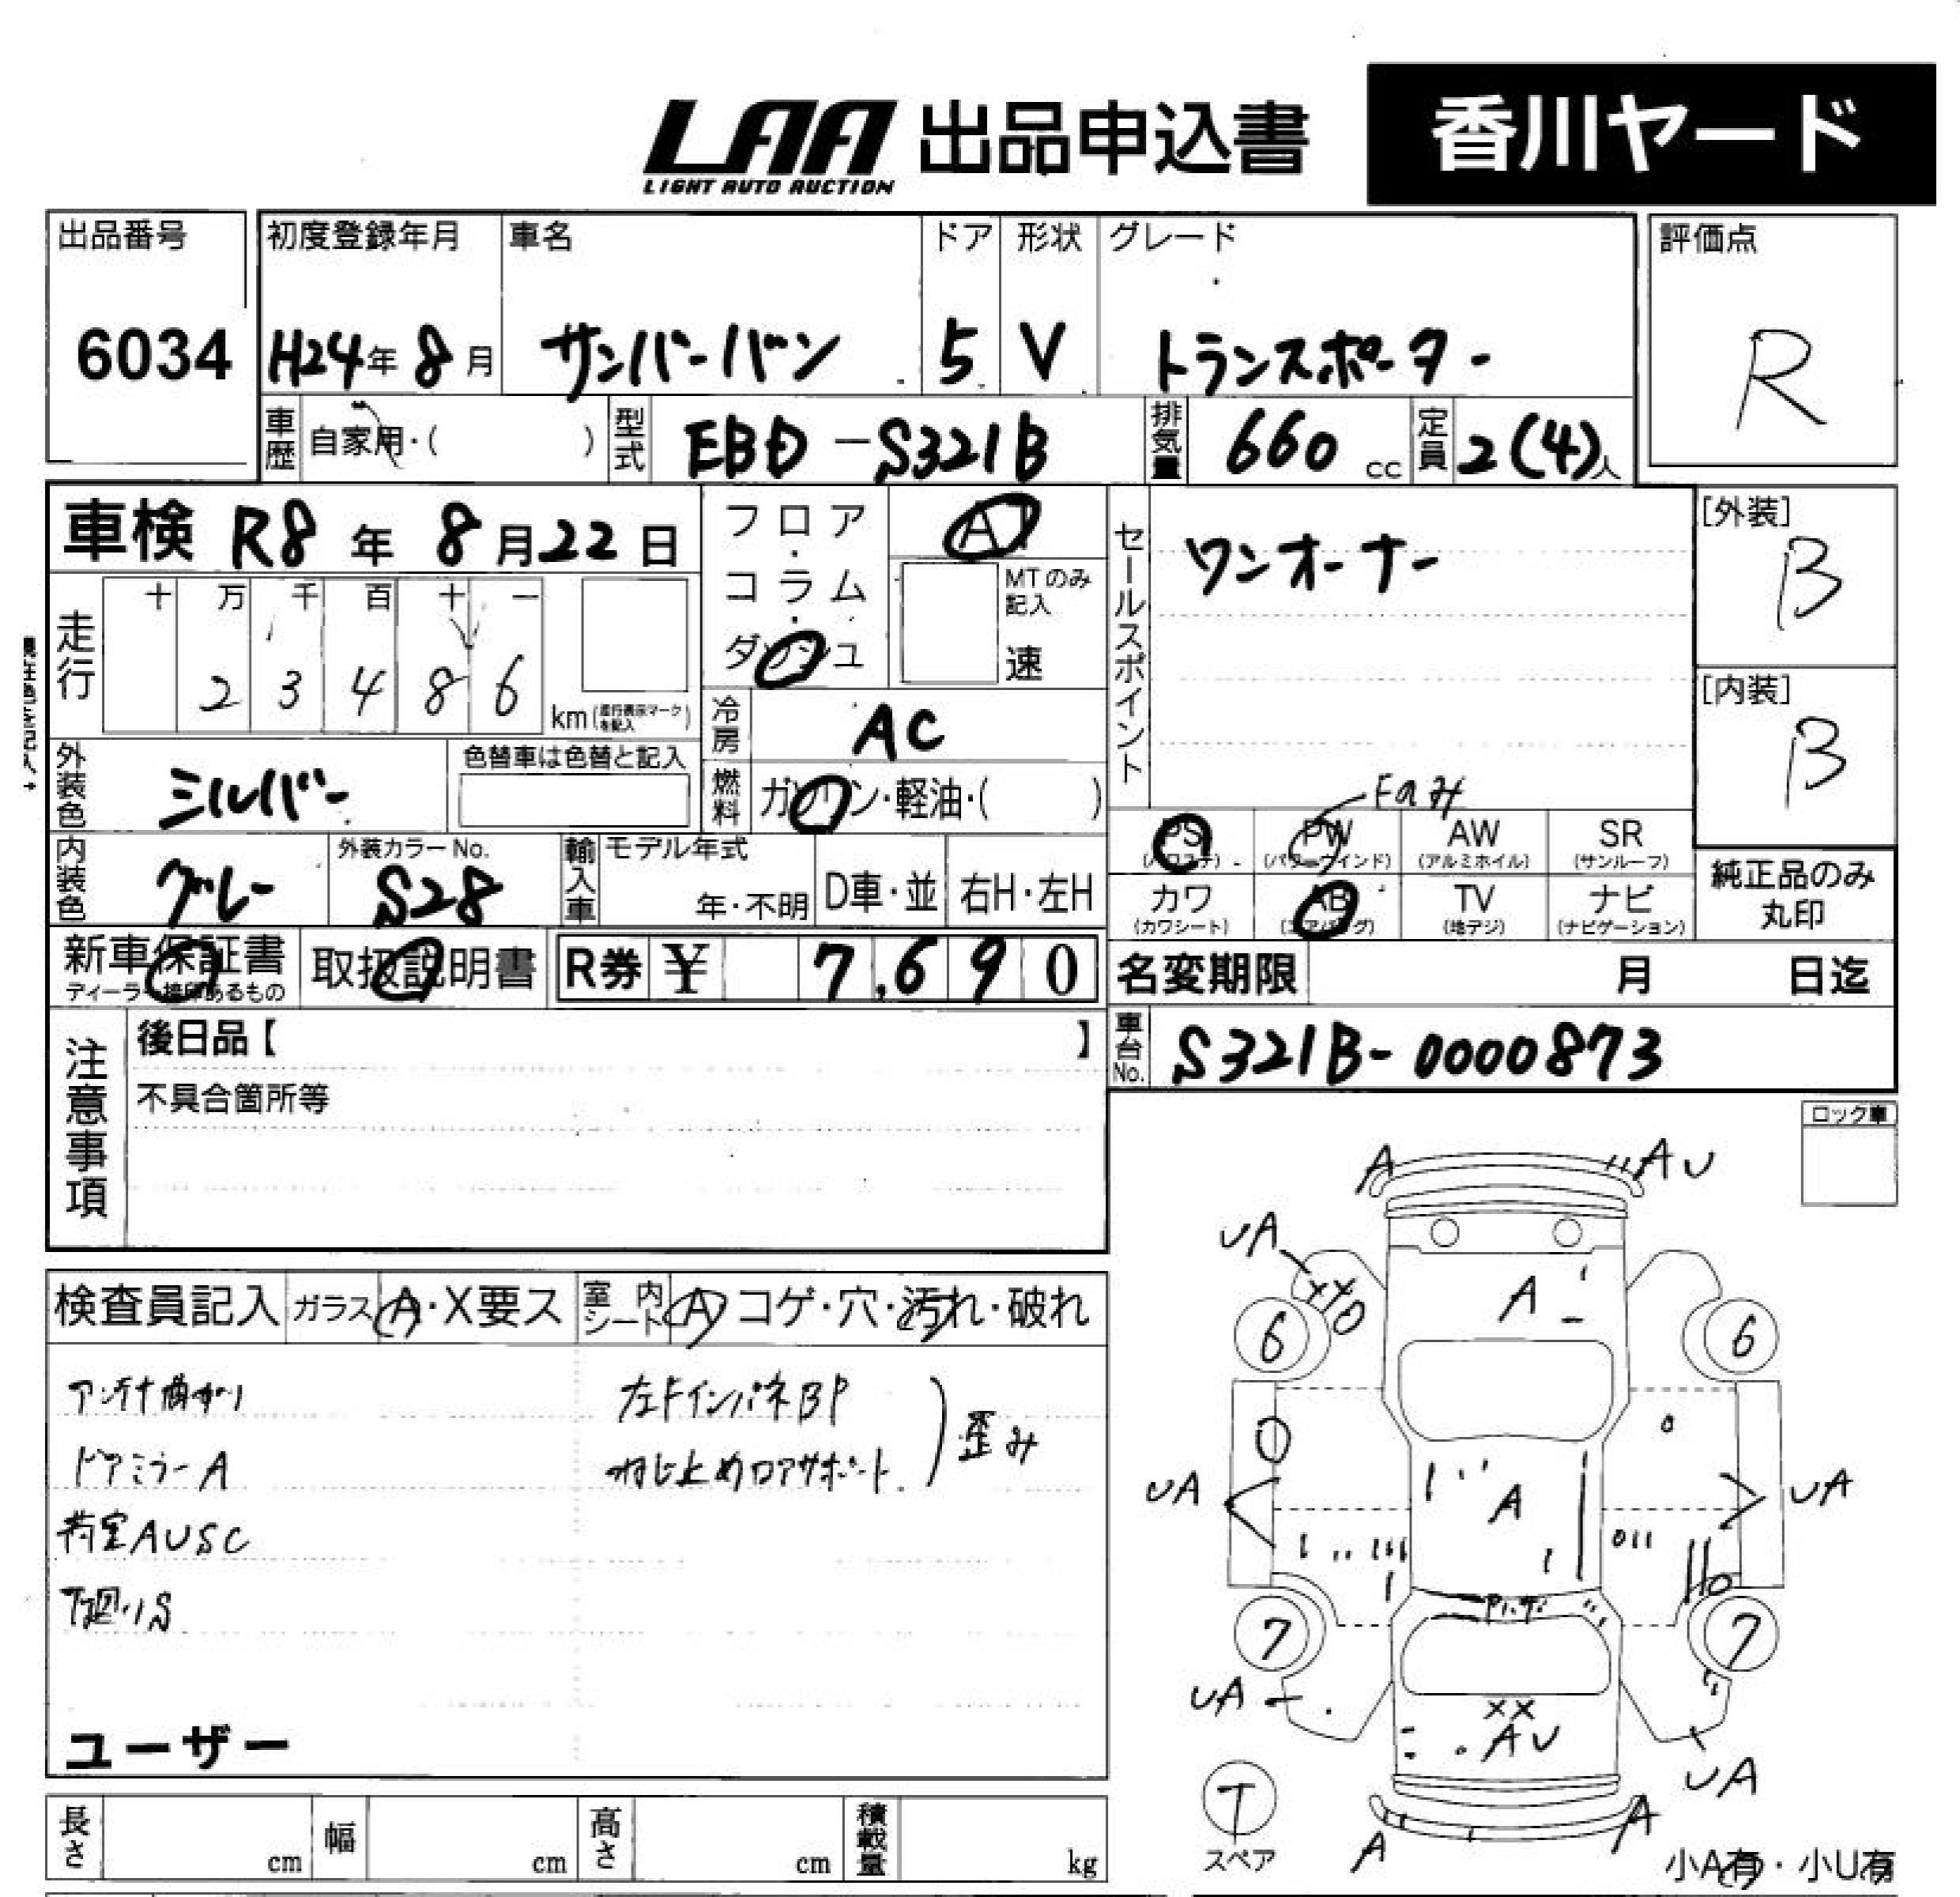 LAA 出品申込書 香川ヤード
LIGHT AUTO AUCTION
出品番号 初度登録年月 車名 ドア 形状 グレード 評価点
6034 H24年8月 サンバーバン 5 V トランスポーター R
車歴 自家用・( ) 型式 EBD-S321B 排気量 660 cc 定員 2(4)人
車検 R8年8月22日
フロア・コラム・ダッシュ AT
MTのみ記入 速
セールスポイント ワンオーナー
[外装] B
走行 十 万 千 百 十 一
2 3 4 8 6 km(走行表示マークを記入)
[内装] B
冷房 AC
外装色 シルバー 色替車は色替と記入
燃料 ガソリン・軽油・( )
Fのみ
PS PW AW SR
(パワステ) (パワーウインド) (アルミホイル) (サンルーフ)
内装色 グレー 外装カラーNo. S28
輸入車 モデル年式 年・不明 D車・並 右H・左H
カワ AB TV ナビ
(カワシート) (エアバッグ) (地デジ) (ナビゲーション)
純正品のみ丸印
新車保証書 取扱説明書 R券 ¥ 7,690
ディーラー捺印あるもの
名変期限 月 日迄
車台No. S321B-0000873
注意事項 後日品【 】
不具合箇所等
ロック車
A AU
UA XX
A
6 6
UA A UA
7 7
UA XX
AU
UA
A A
T
スペア
小A有・小U有
検査員記入 ガラス A・X要ス 室内シート A コゲ・穴・汚れ・破れ
アンテナ曲がり 左FインパネBP
ドアミラーA ねじ止めロアサポート 歪み
荷室AUSC
下廻りS
ユーザー
長さ cm 幅 cm 高さ cm 積載量 kg